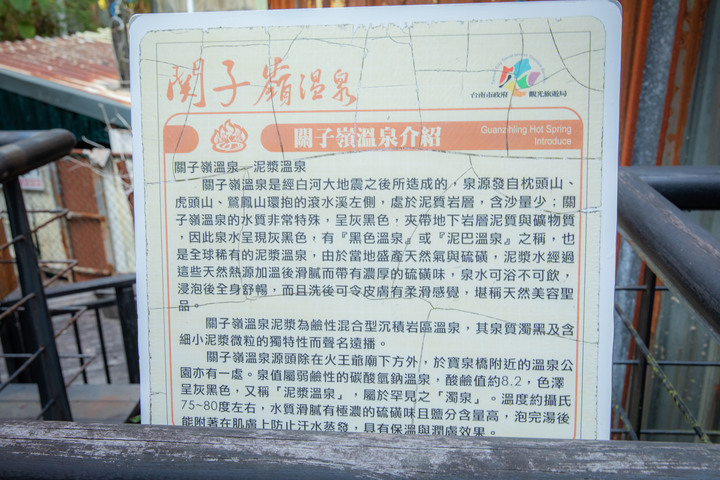 關子嶺溫泉
台南市政府 觀光旅遊局
關子嶺溫泉介紹
Guanzihling Hot Spring
Introduce
關子嶺溫泉—泥漿溫泉
關子嶺溫泉是經白河大地震之後所造成的，泉源發自枕頭山、
虎頭山、鷲鳳山環抱的滾水溪左側，處於泥質岩層，含沙量少；關
子嶺溫泉的水質非常特殊，呈灰黑色，夾帶地下岩層泥質與礦物質
，因此泉水呈現灰黑色，有『黑色溫泉』或『泥巴溫泉』之稱，也
是全球稀有的泥漿溫泉，由於當地盛產天然氣與硫磺，泥漿水經過
這些天然熱源加溫後滑膩而帶有濃厚的硫磺味，泉水可浴不可飲，
浸泡後全身舒暢，而且洗後可令皮膚有柔滑感覺，堪稱天然美容聖
品。
關子嶺溫泉泥漿為鹼性混合型沉積岩區溫泉，其泉質濁黑及含
細小泥漿微粒的獨特性而聲名遠播。
關子嶺溫泉源頭除在火王爺廟下方外，於寶泉橋附近的溫泉公
園亦有一處。泉值屬弱鹼性的碳酸氫鈉溫泉，酸鹼值約8.2，色澤
呈灰黑色，又稱「泥漿溫泉」，屬於罕見之「濁泉」。溫度約攝氏
75~80度左右，水質滑膩有極濃的硫磺味且鹽分含量高，泡完湯後
能附著在肌膚上防止汗水蒸發，具有保溫與潤膚效果。